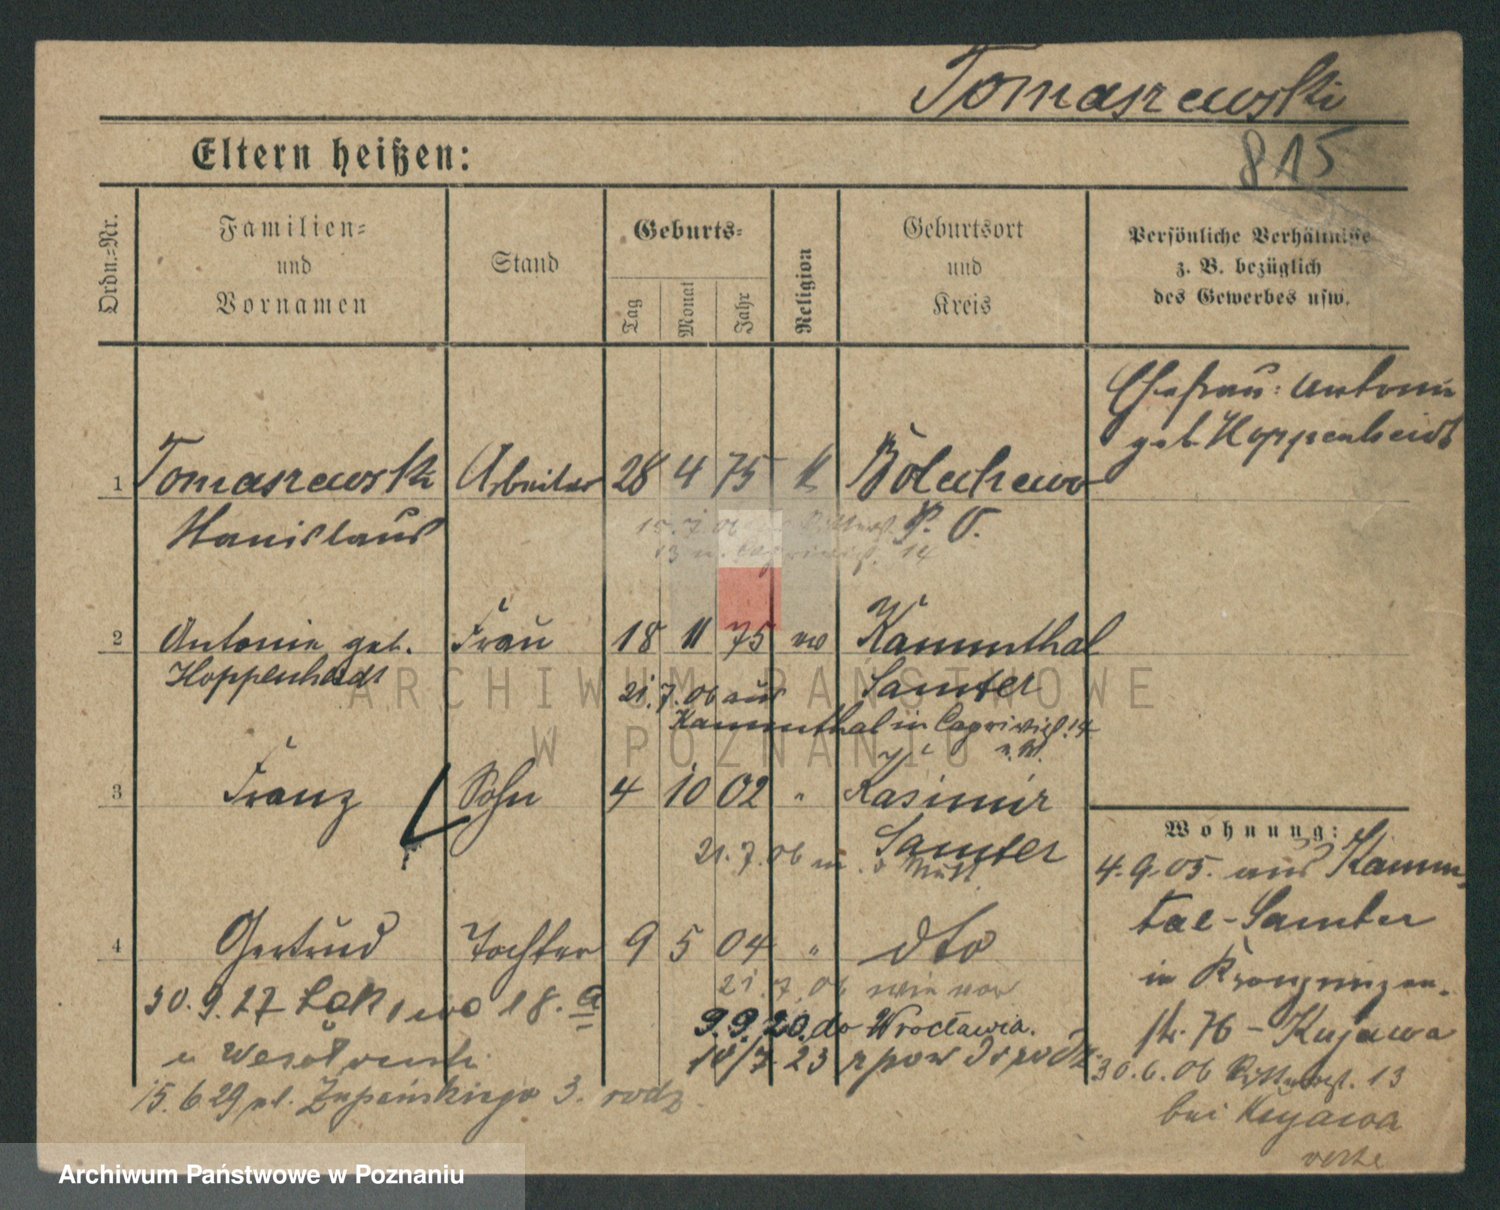 Tomaszewski
Eltern heißen:
815
Ordn.-Nr.
Familien-
und
Vornamen
Stand
Geburts-
Tag
Monat
Jahr
Religion
Geburtsort
und
Kreis
Persönliche Verhältnisse
z. B. bezüglich
des Gewerbes usw.
Ehefrau: Antonie
geb. Hoppenheidt
1 Tomaszewski Arbeiter 28 4 75 k Bolechowo
Stanislaus P. O.
15. 7. 06 Ritterst.
13 n. Caprivist. 14
2 Antonie geb. Frau 18 11 75 ev Kammthal
Hoppenheidt Samter
21. 7. 06 aus
Kammthal in Caprivist. 14
3 Franz Sohn 4 10 02 " Kasimir
Samter
21. 7. 06 m. d. Mutt.
4 Gertrud Tochter 9 5 04 " dto
21. 7. 06 wie vor
30. 9. 27 18. a
9. 9. 20. do Wrocławia.
10/7 23 z pow
15. 6. 29 pl. Żupańskiego 3. rodz.
Wohnung:
4. 9. 05. aus Kamm-
tal-Samter
in Kronprinzen-
str. 76 - Kujawa
30. 6. 06 Ritterst. 13
bei Kujawa
verte
ARCHIWUM PAŃSTWOWE
W POZNANIU
Archiwum Państwowe w Poznaniu